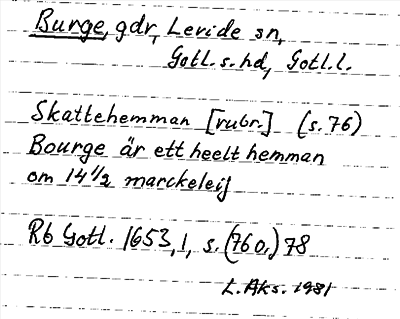 Burge, gdr, Levide sn,
Gotl. s. hd, Gotl. l.
Skattehemman [rubr.] (s. 76)
Bourge är ett heelt hemman
om 14 1/2 marckeleij
Rb Gotl. 1653, 1, s. (76 o.) 78
L. Aks. 1981